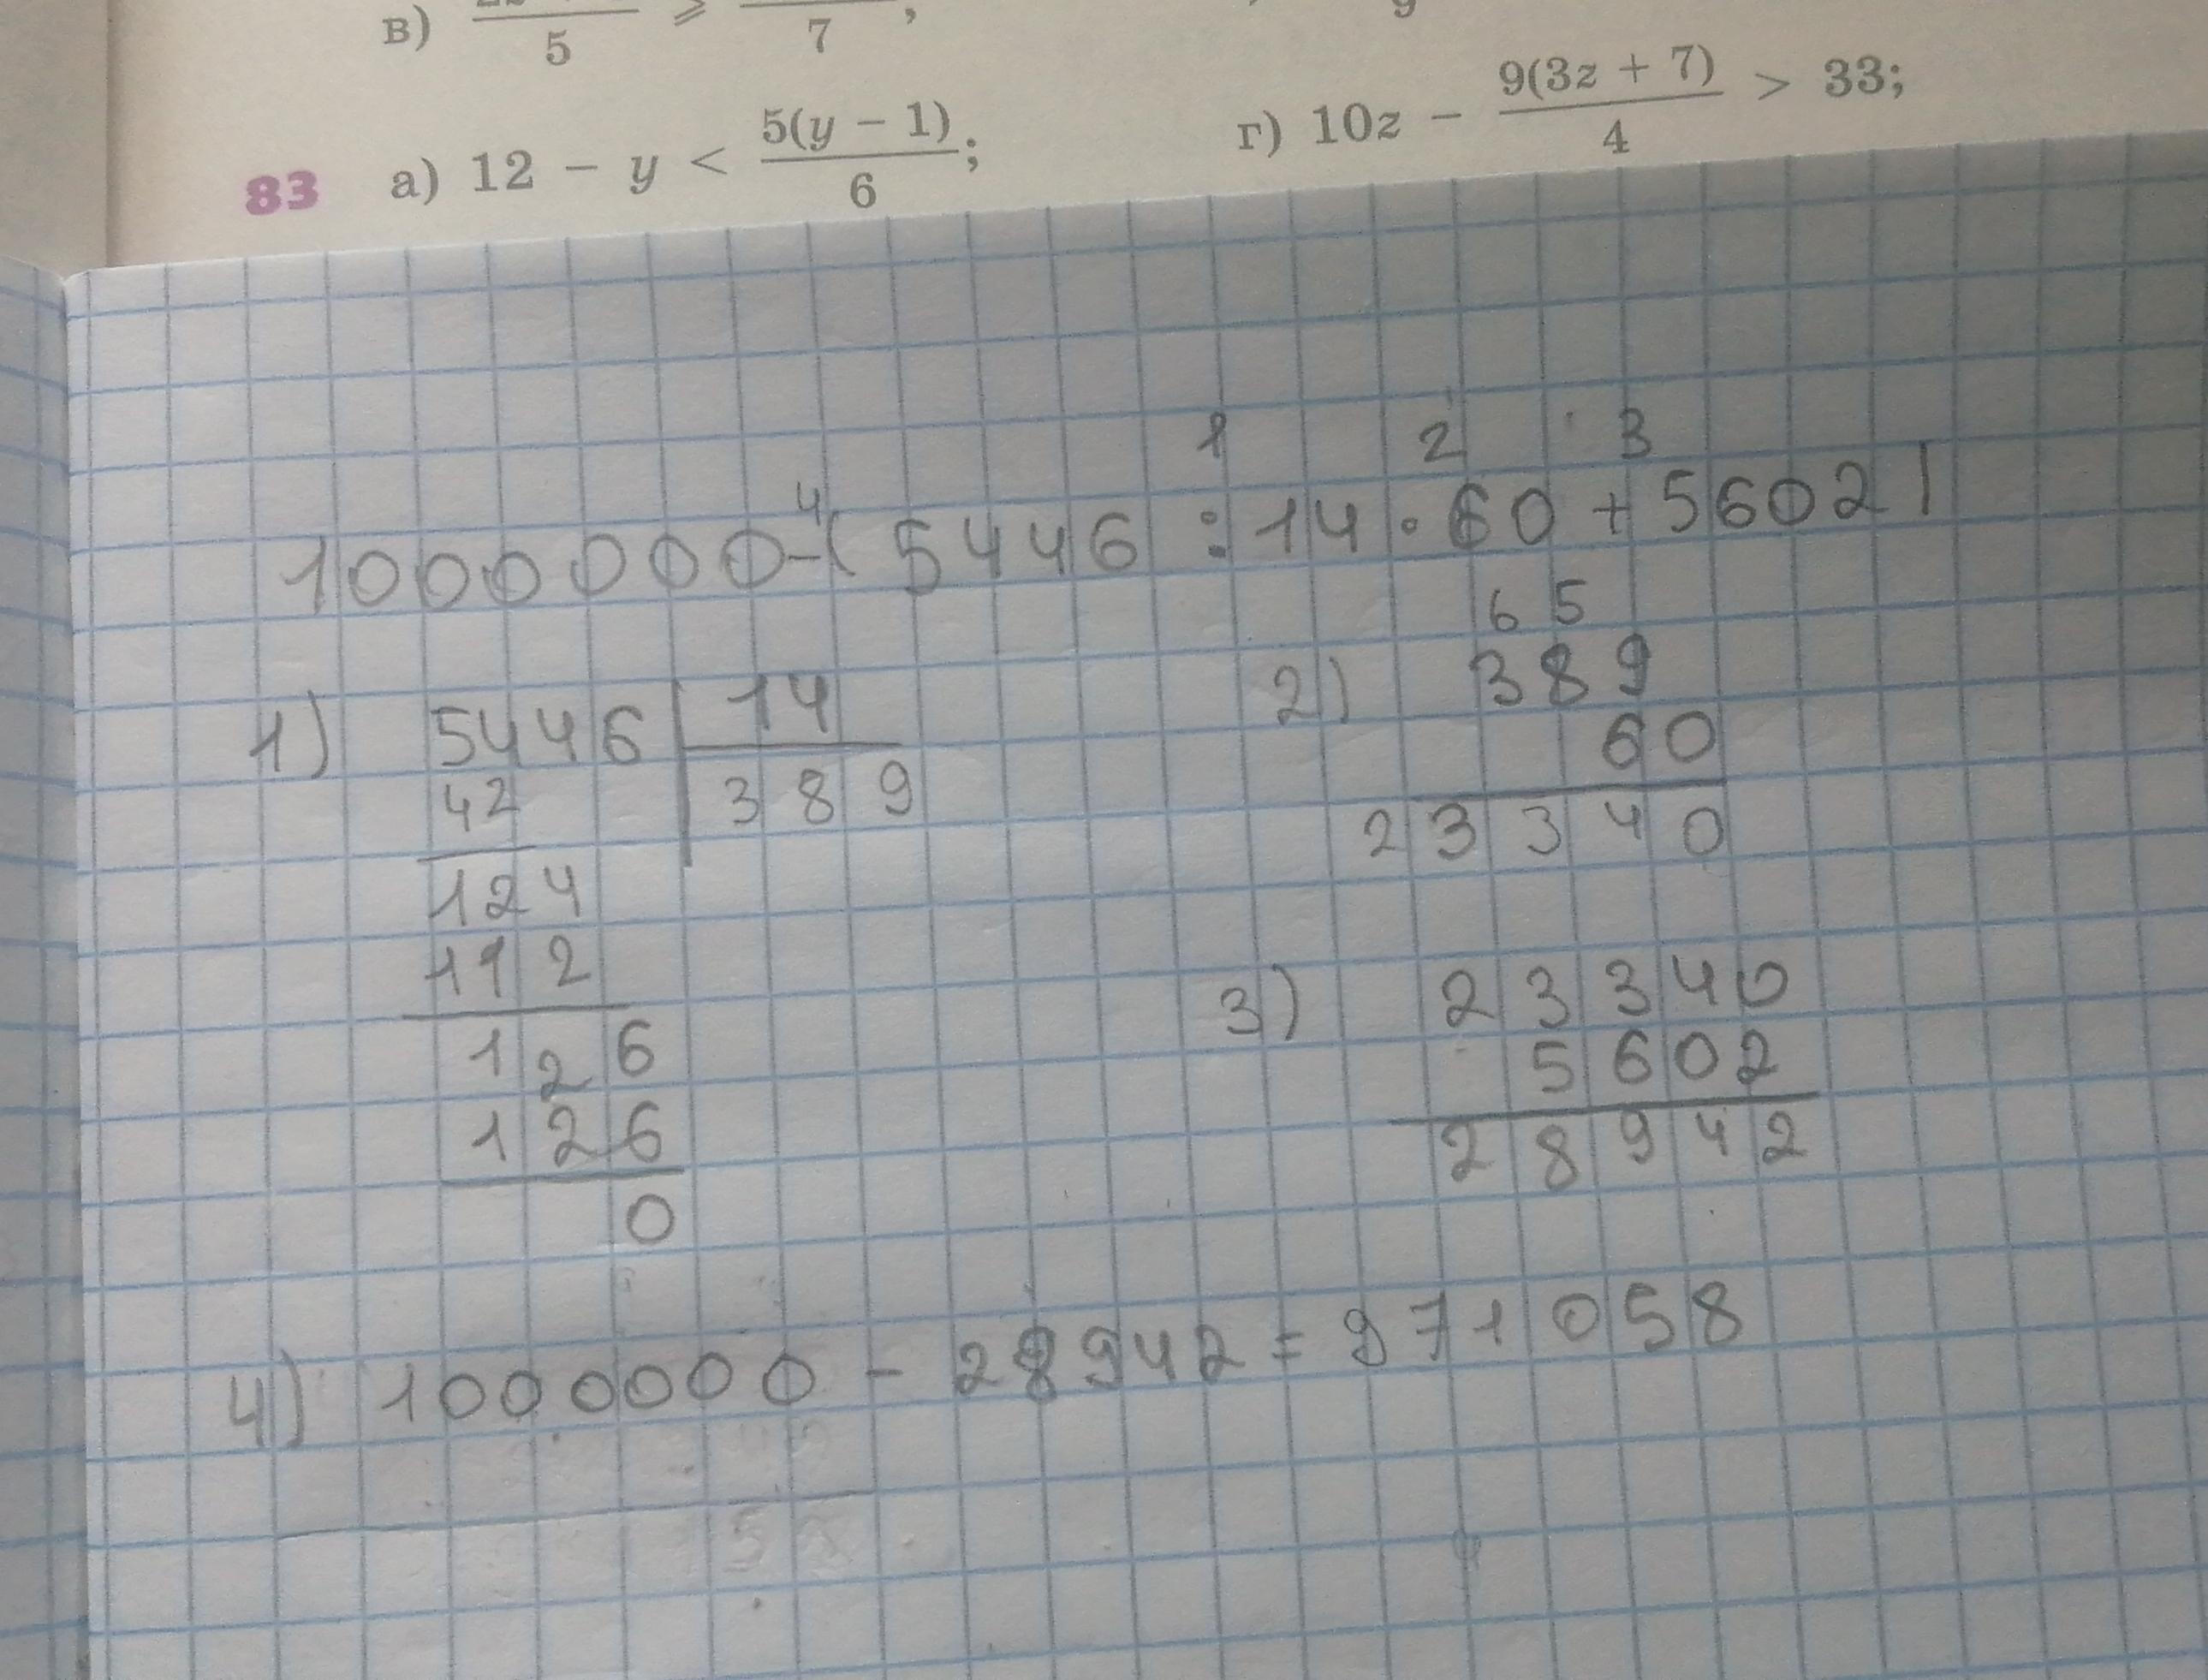 в) 5 ⩾ 7 ;
г) 10z − 9(3z + 7)/4 > 33;
83 а) 12 − y < 5(y − 1)/6;
1 2 3
4
1000000-(5446:14·60+5602)
1) 5446 14
42 389
124
112
126
126
0
2) 65
389
60
23340
3) 23340
5602
28942
4) 1000000 - 28942 = 971058